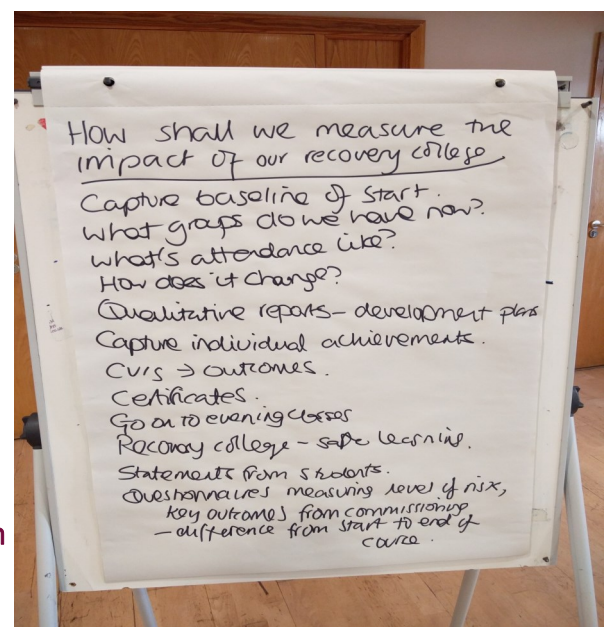 How shall we measure the
impact of our recovery college
Capture baseline of start.
What groups do we have now?
What's attendance like?
How does it change?
Qualitative reports – development plans
Capture individual achievements.
CV's → outcomes.
Certificates.
Go on to evening classes
Recovery college – safe learning.
Statements from students.
Questionnaires measuring level of risk,
key outcomes from commissioning
– difference from start to end of
course.